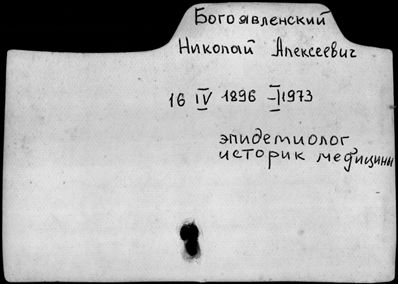 Богоявленский
Николай Алексеевич
16 IV 1896 – I 1973
эпидемиолог
историк медицины